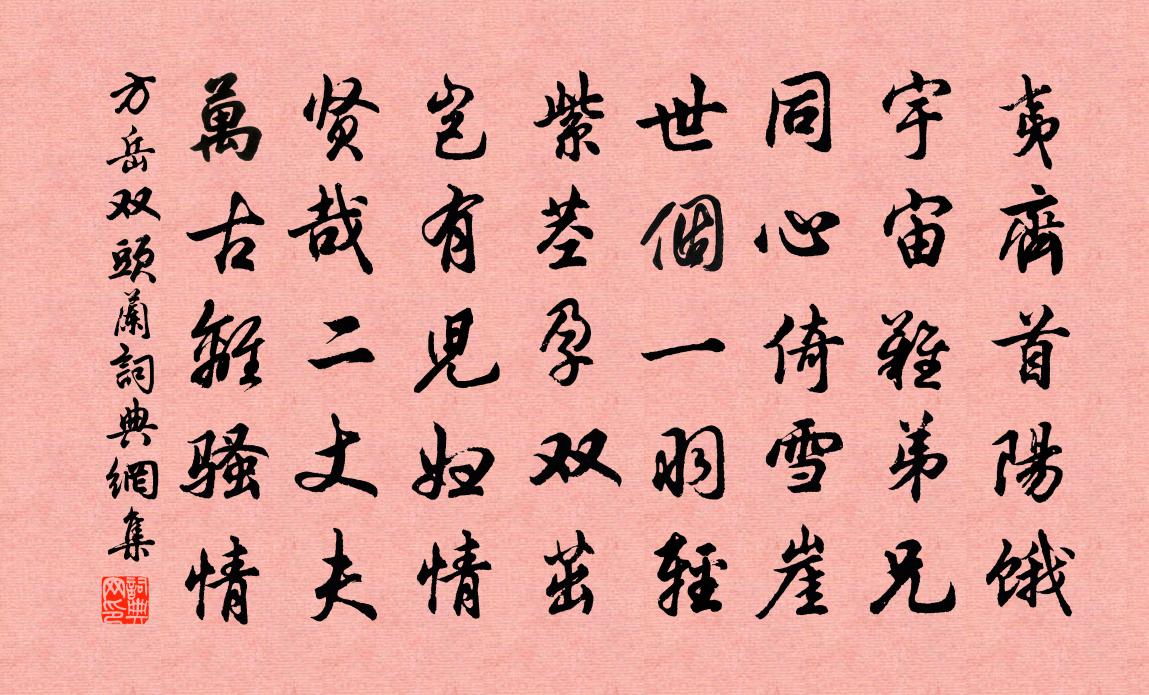 夷齊首陽餓
宇宙難弟兄
同心倚雪崖
世個一羽輕
紫茎孕双茁
岂有児妇情
贤哉二丈夫
萬古離騷情
方岳双頭蘭詞典網集
詞典